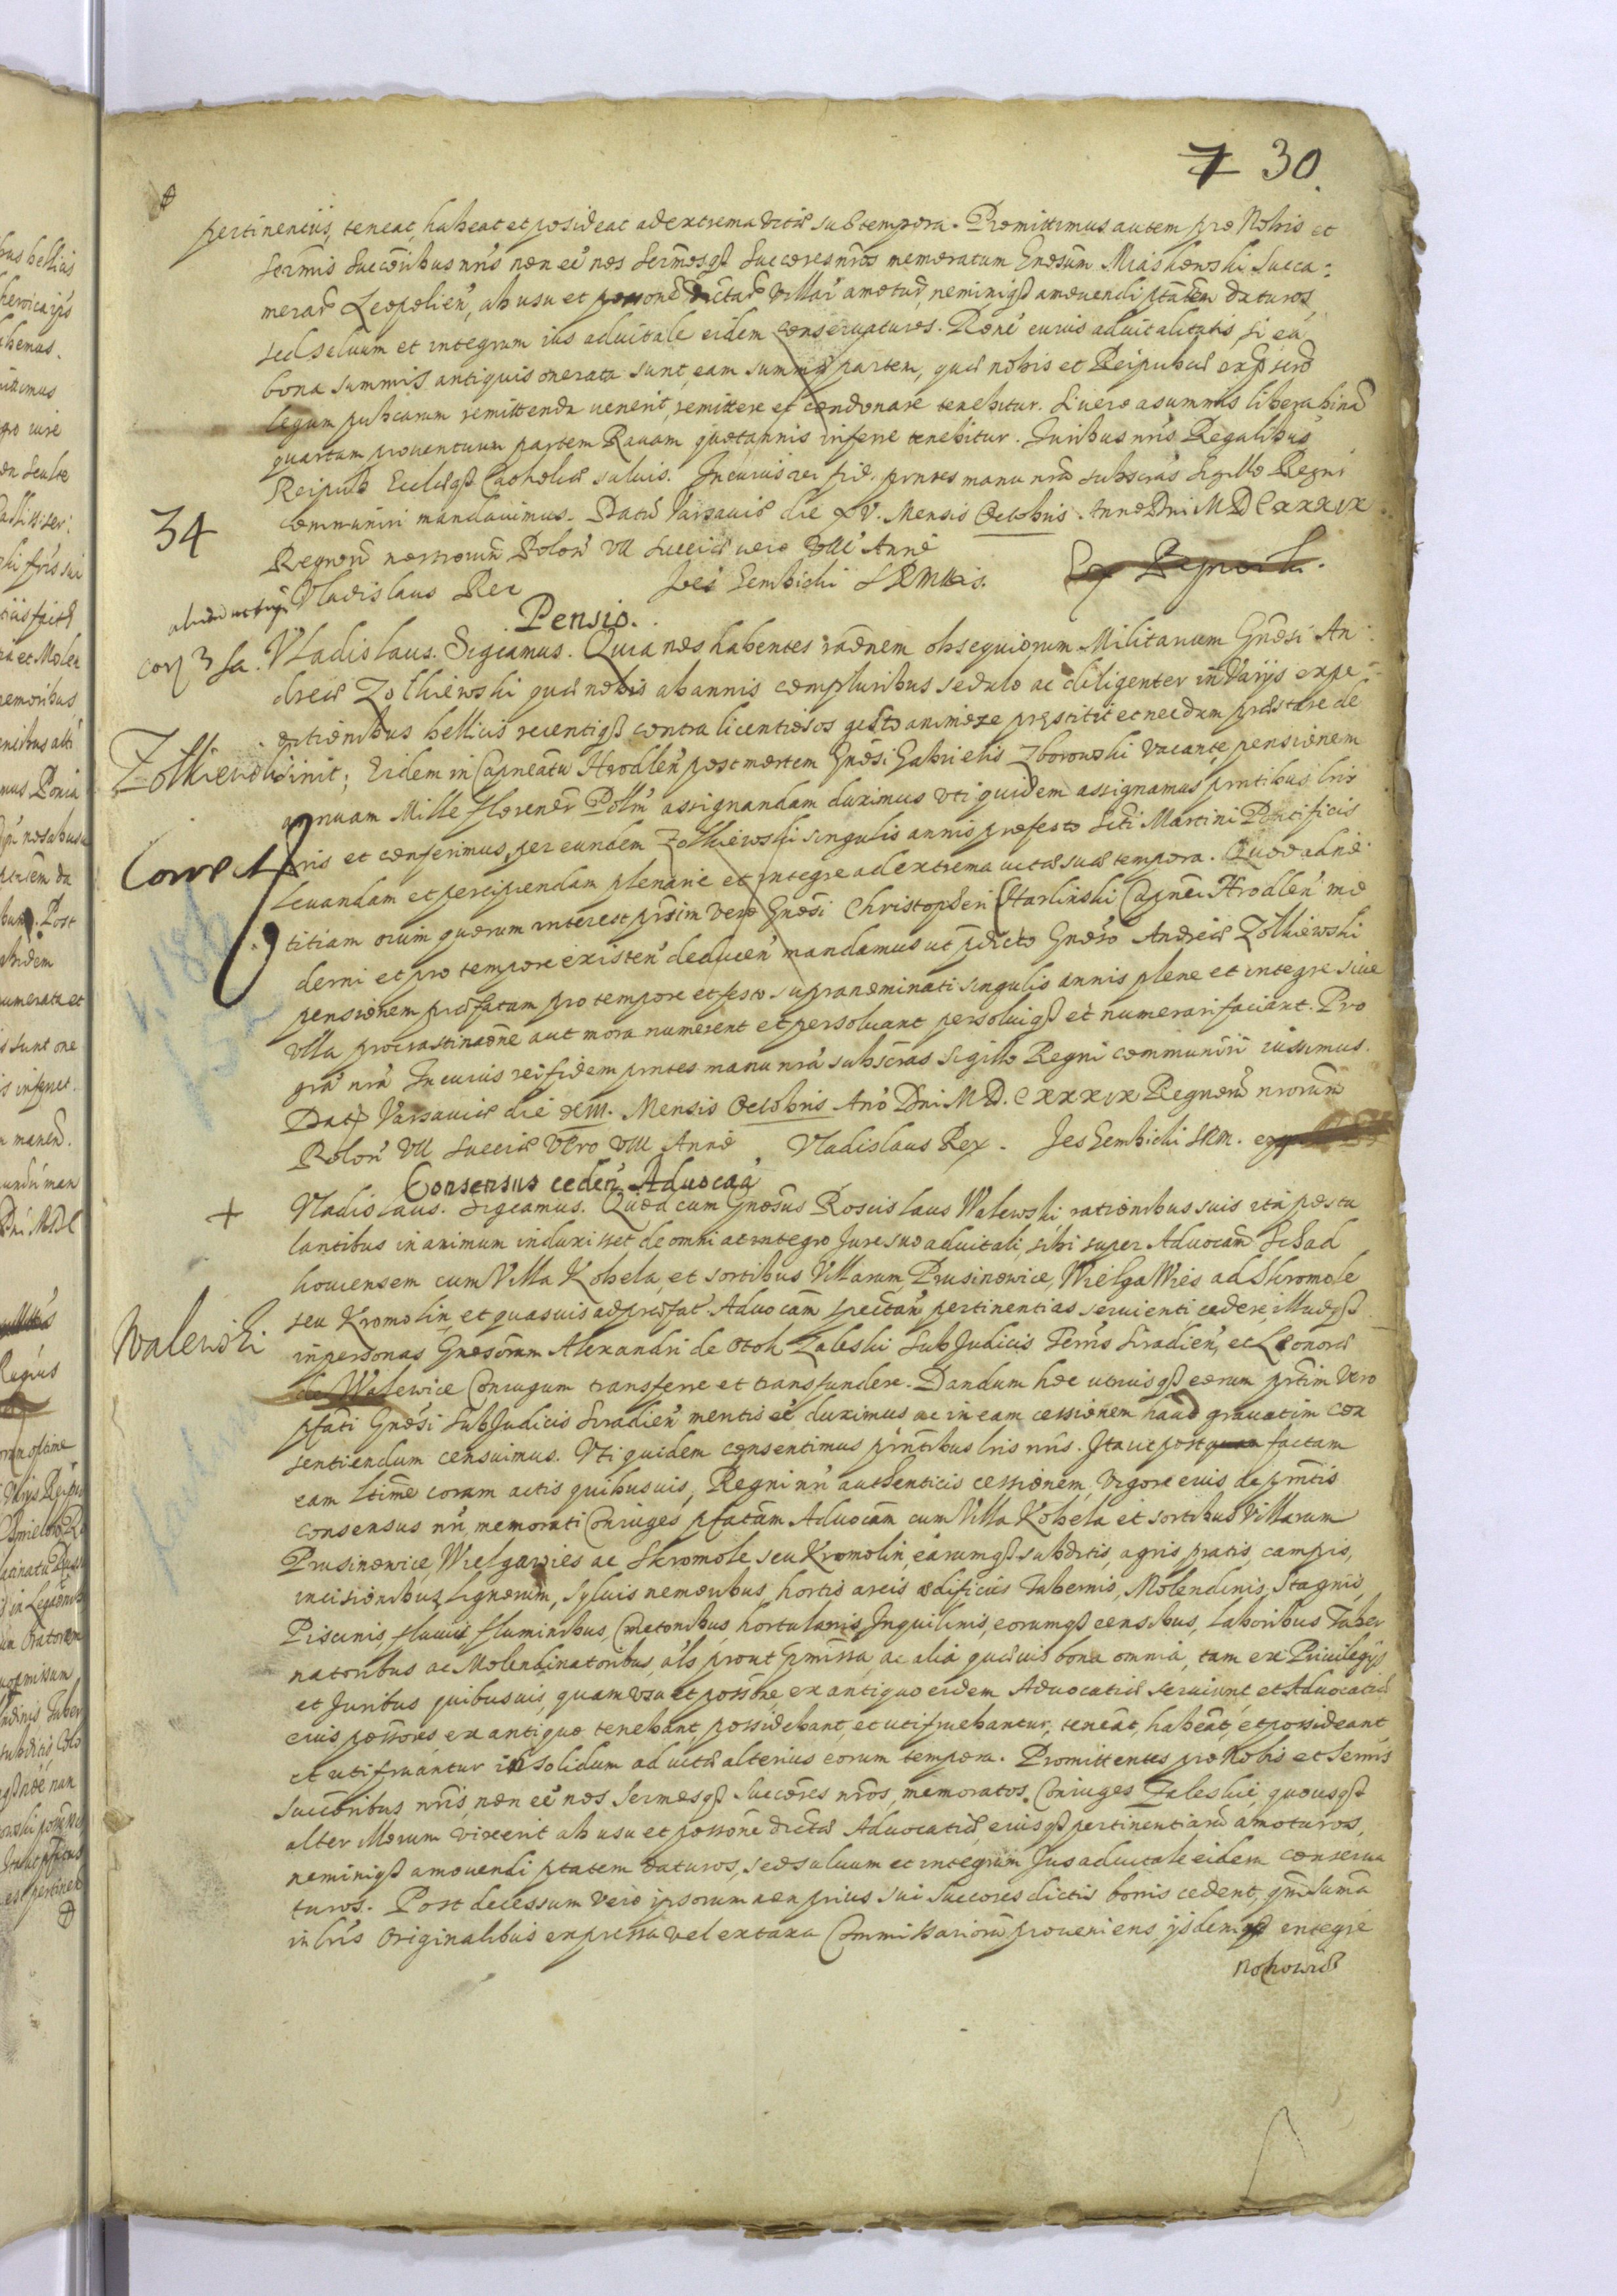 7 30.
pertinentiis, teneat, habeat et posideat ad extrema vitæ suæ tempora. Promittimus autem pro Nobis et
Sermis Succoribus nris non eē nos Sermosq Succores nros memoratum Gnosum Miaskowski Succa:
merar Leopolien, ab usu et possone dictar villar amotur, neminiq amouendi ptatem daturos,
sed saluum et integrum ius aduitale eidem conseruaturos. Rone cuius aduitalitatis si ea
bona summis antiquis onerata sunt, eam summæ partem, quæ nobis et Reipublicæ ex
legum pubcarum remittenda uenerit, remittere et condonare tenebitur. Si uero a summis libera
quartam prouentuum partem Rauam quotannis inferre tenebitur. Iuribus nris Regalibus
Reipub Ecclæq Catholicæ saluis. In cuius rei fid. prntes manu nra subscras Sigillo Regni
communiri mandauimus. Datu Varsauiæ die XV. Mensis Octobris. Anno Dni MDCXXXIX
34
Regnor nostrorum Polon VII Sueciæ uero VIII Anno
Vladislaus Rex Jes Gembicki SRMttis.
Pensio.
corr 3 fa.
Vladislaus. Sigcamus. Quia nos habentes raonem obsequiorum Militarium Gnosi An:
dreæ Zolkiewski quæ nobis ab annis compluribus sedulo ac diligenter in Varijs expe:
ditionibus bellicis recentiq contra licentiosos gesto animose præstitit et necdum præstare de
Zolkiewski
sinit; Eidem in Capneatu Hrodlen post mortem Gnosi Gabrielis Zborowski vacante, pensionem
annuam Mille florenor Pollm assignandam duximus vti quidem assignamus prntibus lris
Correct
nris et conferimus, per eundem Zolkiewski singulis annis pro festo Scti Martini Pontificis
leuandam et percipiendam plenarie et integre ad extrema uitæ suæ tempora. Quod ad no:
titiam oium quorum interest prsim vero Gnosi Christopheri Charlinski Capnei Hrodlen mo
derni et pro tempore existen deducen mandamus ut pdicto Gnoso Andreæ Zolkiewski
pensionem præfatam pro tempore et festo supranominati singulis annis plene et integre sine
vlla procrastinaone aut mora numerent et persoluant persoluiq et numerari faciant. Pro
gra nra In cuius rei fidem prntes manu nra subscras Sigillo Regni communiri iussimus.
Dat Varsauiæ die XIII. Mensis Octobris Ano Dni MD.CXXXIX Regnor nrorum
Polon VII Sueciæ Vero VIII Anno Vladislaus Rex. Jes Gembicki SRM.
Consensus ceden Aduocaa
+
Vladislaus. Sigcamus. Quod cum Gnosus Roscislaus Walewski rationibus suis ita postu
lantibus in animum induxisset de omni ac integro Jure suo aduitali, sibi super Aduocam Schad
kouiensem cum Villa Kobela, et sortibus Villarum, Prusinowice, Wielga Wies ad Skromole
seu Kromolin, et quasuis ad præfat Aduocam spectan pertinentias seruienti cedere, illudq
Walewski
in personas Gnosorum Alexandri de Otok Zaleski SubJudicis Terris Siradien, et Leonoræ
de Walewice Coniugum transferre et transfundere. Dandum hoc utriusq eorum prtim vero
pfati Gnosi SubJudicis Siradien mentis eē duximus ac in eam cessionem haud grauatim con
sentiendum censuimus. Vti quidem consentimus prntibus lris nris. Ita ut post factam
eam ltime coram actis quibusuis, Regni nri authenticis cessionem, vigore cuis de prntis
consensus nri, memorati Coniuges pfatam Aduocam cum Villa Kobela et sortibus Villarum
Prusinowice, Wielgawies ac Skromole, seu Kromolin, earumq subditis, agris, pratis, campis,
incisionibus lignorum, syluis nemoribus, hortis areis ædificiis Tabernis, Molendinis, Stagnis,
Piscinis, fluuiis, fluminibus, Cmetonibus, hortulanis, Inquilinis, eorumq censibus, laboribus Taber
natoribus ac Molendinatoribus, als prout pmissa, ac alia quæuis bona omnia, tam ex Priuilegijs
et Juribus quibusuis, quam vsu et possone, ex antiquo eidem Aduocatiæ seruiunt, et Aduocatiæ
eius possores ex antiquo, tenebant, possidebant, et utifruebantur, teneat, habeat, et possideant
et utifruantur in solidum ad uitæ alterius eorum tempora. Promittentes pro Nobis et Sermis
Succoribus nris, non eē nos Sermosq Succores nros, memoratos Coniuges Zaleskie, quousq
alter illorum vixerit ab usu et possone dictæ Aduocatiæ, eiusq pertinentiaru amoturos,
neminiq amouendi ptatem daturos, sed saluum et integrum Jus aduitale eidem conserua
turos. Post decessum vero ipsorum non prius sui Succores dictis bonis cedent, qm suma
in lris Originalibus expressa vel ex taxa Commissarioru proueniens ijsdemq integre